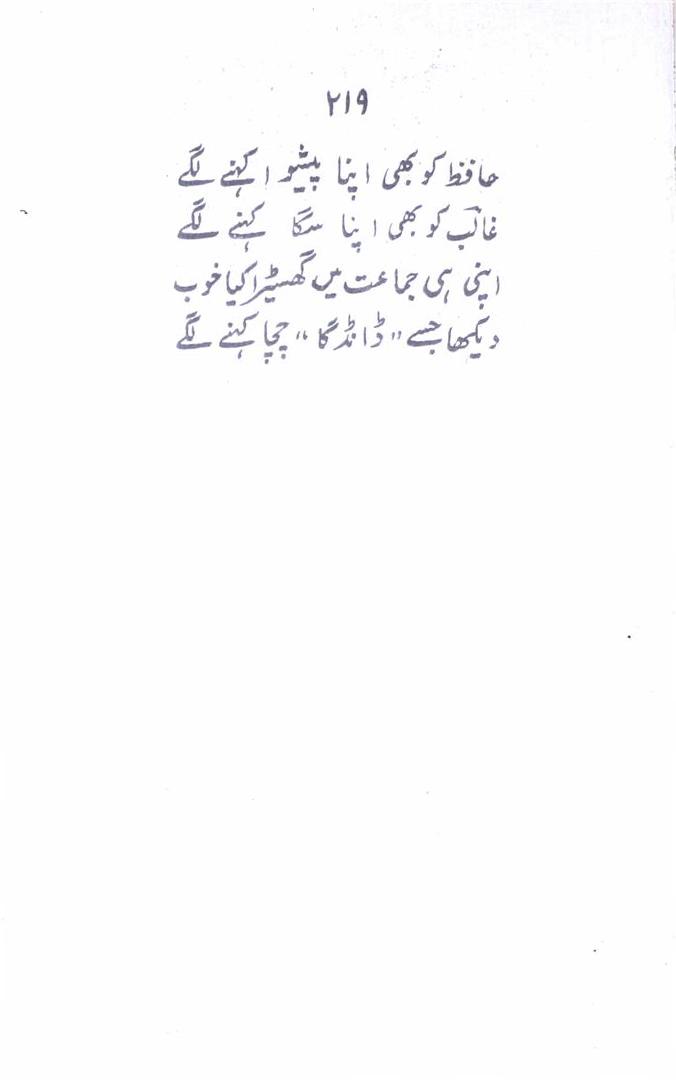 ۲۱۹
حافظ کو بھی اپنا پیشوا کہنے لگے
غالب کو بھی اپنا سگا کہنے لگے
اپنی ہی جماعت میں گھسیڑا کیا خوب
دیکھا جسے "ڈانڈگا" چچا کہنے لگے